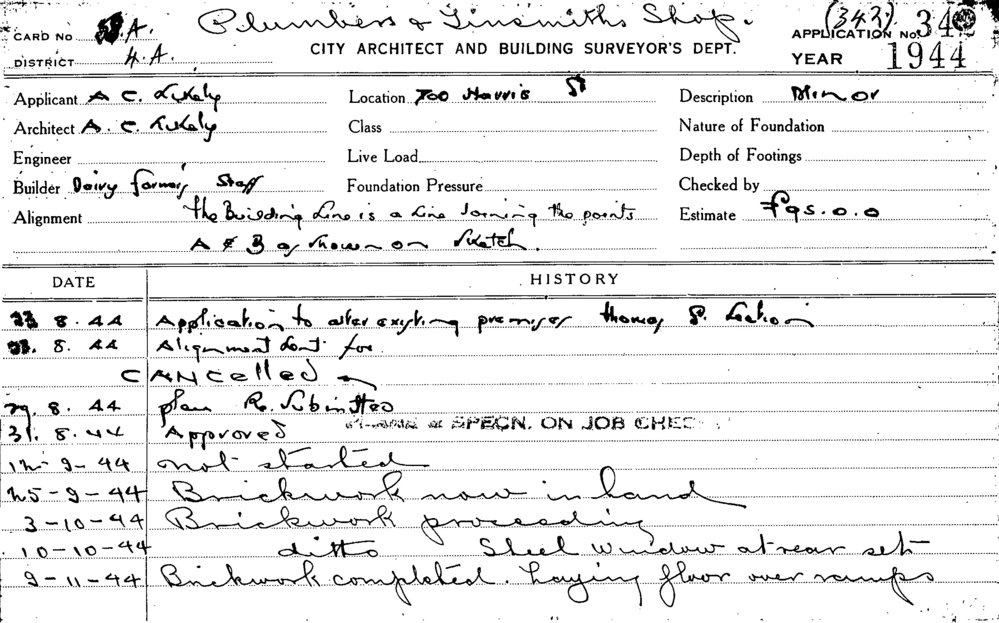 Plumbers & Tinsmiths Shop.
CARD NO A. CITY ARCHITECT AND BUILDING SURVEYOR'S DEPT. (343) APPLICATION No. 342
DISTRICT H.A. YEAR 1944
Applicant A C. Lukely Location 700 Harris St Description Minor
Architect A. C. Lukely Class Nature of Foundation
Engineer Live Load Depth of Footings
Builder Dairy farmers Staff Foundation Pressure Checked by
Alignment The Building Line is a Line Joining the points Estimate £95.0.0
A & B as shown on Sketch.
DATE HISTORY
8.44 Application to alter existing premises Thomas St. Section
8.44 Alignment Sent for
CANCELLED
29.8.44 plan Re. Submitted
31.8.44 Approved PLANS & SPECN. ON JOB CHEC
12-9-44 not started
25-9-44 Brickwork now in hand
3-10-44 Brickwork proceeding
10-10-44 ditto Steel window at rear set
9-11-44 Brickwork completed. Laying floor over ramps